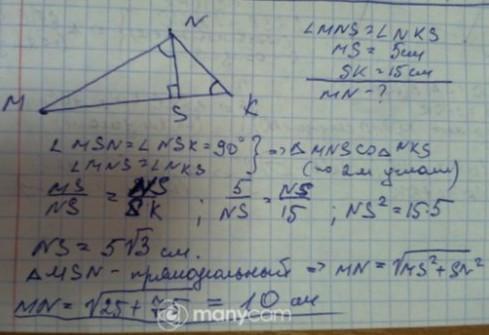 N
M
S
K
∠MNS = ∠NKS
MS = 5см
SK = 15см
MN - ?
∠MSN = ∠NSK = 90° } => △MNS ∽ △NKS
∠MNS = ∠NKS (по 2м углам)
MS/NS = NS/SK ; 5/NS = NS/15 ; NS² = 15·5
NS = 5√3 см.
△MSN - прямоугольный => MN = √MS² + SN²
MN = √25 + 75 = 10 см
manycam